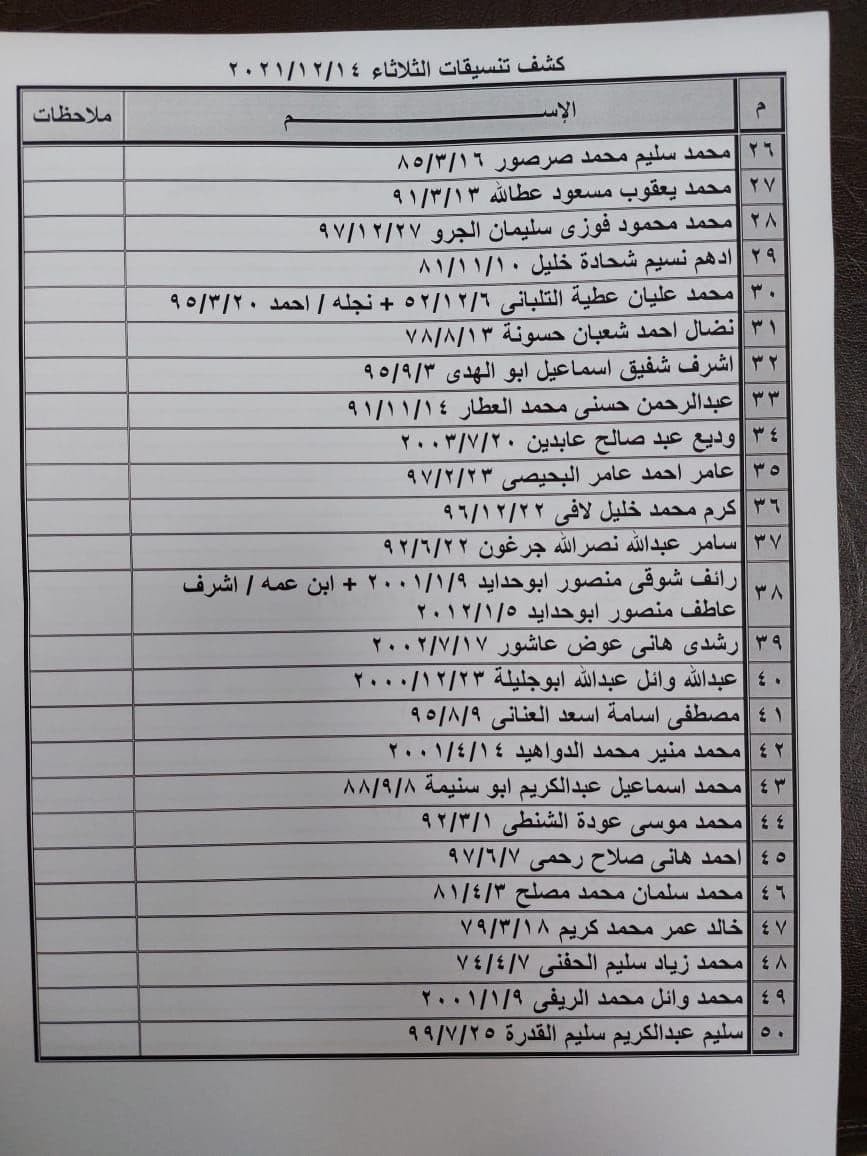 كشف تنسيقات الثلاثاء ٢٠٢١/١٢/١٤
م الإســــــــم ملاحظات
٢٦ محمد سليم محمد صرصور ٨٥/٣/١٦
٢٧ محمد يعقوب مسعود عطالله ٩١/٣/١٣
٢٨ محمد محمود فوزى سليمان الجرو ٩٧/١٢/٢٧
٢٩ ادهم نسيم شحادة خليل ٨١/١١/١٠
٣٠ محمد عليان عطية التلبانى ٥٢/١٢/٦ + نجله / احمد ٩٥/٣/٢٠
٣١ نضال احمد شعبان حسونة ٧٨/٨/١٣
٣٢ اشرف شفيق اسماعيل ابو الهدى ٩٥/٩/٣
٣٣ عبدالرحمن حسنى محمد العطار ٩١/١١/١٤
٣٤ وديع عبد صالح عابدين ٢٠٠٣/٧/٢٠
٣٥ عامر احمد عامر البحيصى ٩٧/٢/٢٣
٣٦ كرم محمد خليل لافى ٩٦/١٢/٢٢
٣٧ سامر عبدالله نصرالله جرغون ٩٢/٦/٢٢
٣٨ رائف شوقى منصور ابوحدايد ٢٠٠١/١/٩ + ابن عمه / اشرف
عاطف منصور ابوحدايد ٢٠١٢/١/٥
٣٩ رشدى هانى عوض عاشور ٢٠٠٢/٧/١٧
٤٠ عبدالله وائل عبدالله ابوجليلة ٢٠٠٠/١٢/٢٣
٤١ مصطفى اسامة اسعد العنانى ٩٥/٨/٩
٤٢ محمد منير محمد الدواهيد ٢٠٠١/٤/١٤
٤٣ محمد اسماعيل عبدالكريم ابو سنيمة ٨٨/٩/٨
٤٤ محمد موسى عودة الشنطى ٩٢/٣/١
٤٥ احمد هانى صلاح رحمى ٩٧/٦/٧
٤٦ محمد سلمان محمد مصلح ٨١/٤/٣
٤٧ خالد عمر محمد كريم ٧٩/٣/١٨
٤٨ محمد زياد سليم الحفنى ٧٤/٤/٧
٤٩ محمد وائل محمد الريفى ٢٠٠١/١/٩
٥٠ سليم عبدالكريم سليم القدرة ٩٩/٧/٢٥